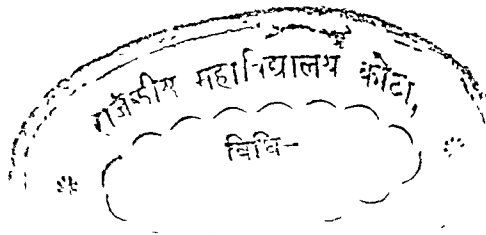 राजकीय महाविद्यालय कोटा,
विधि-